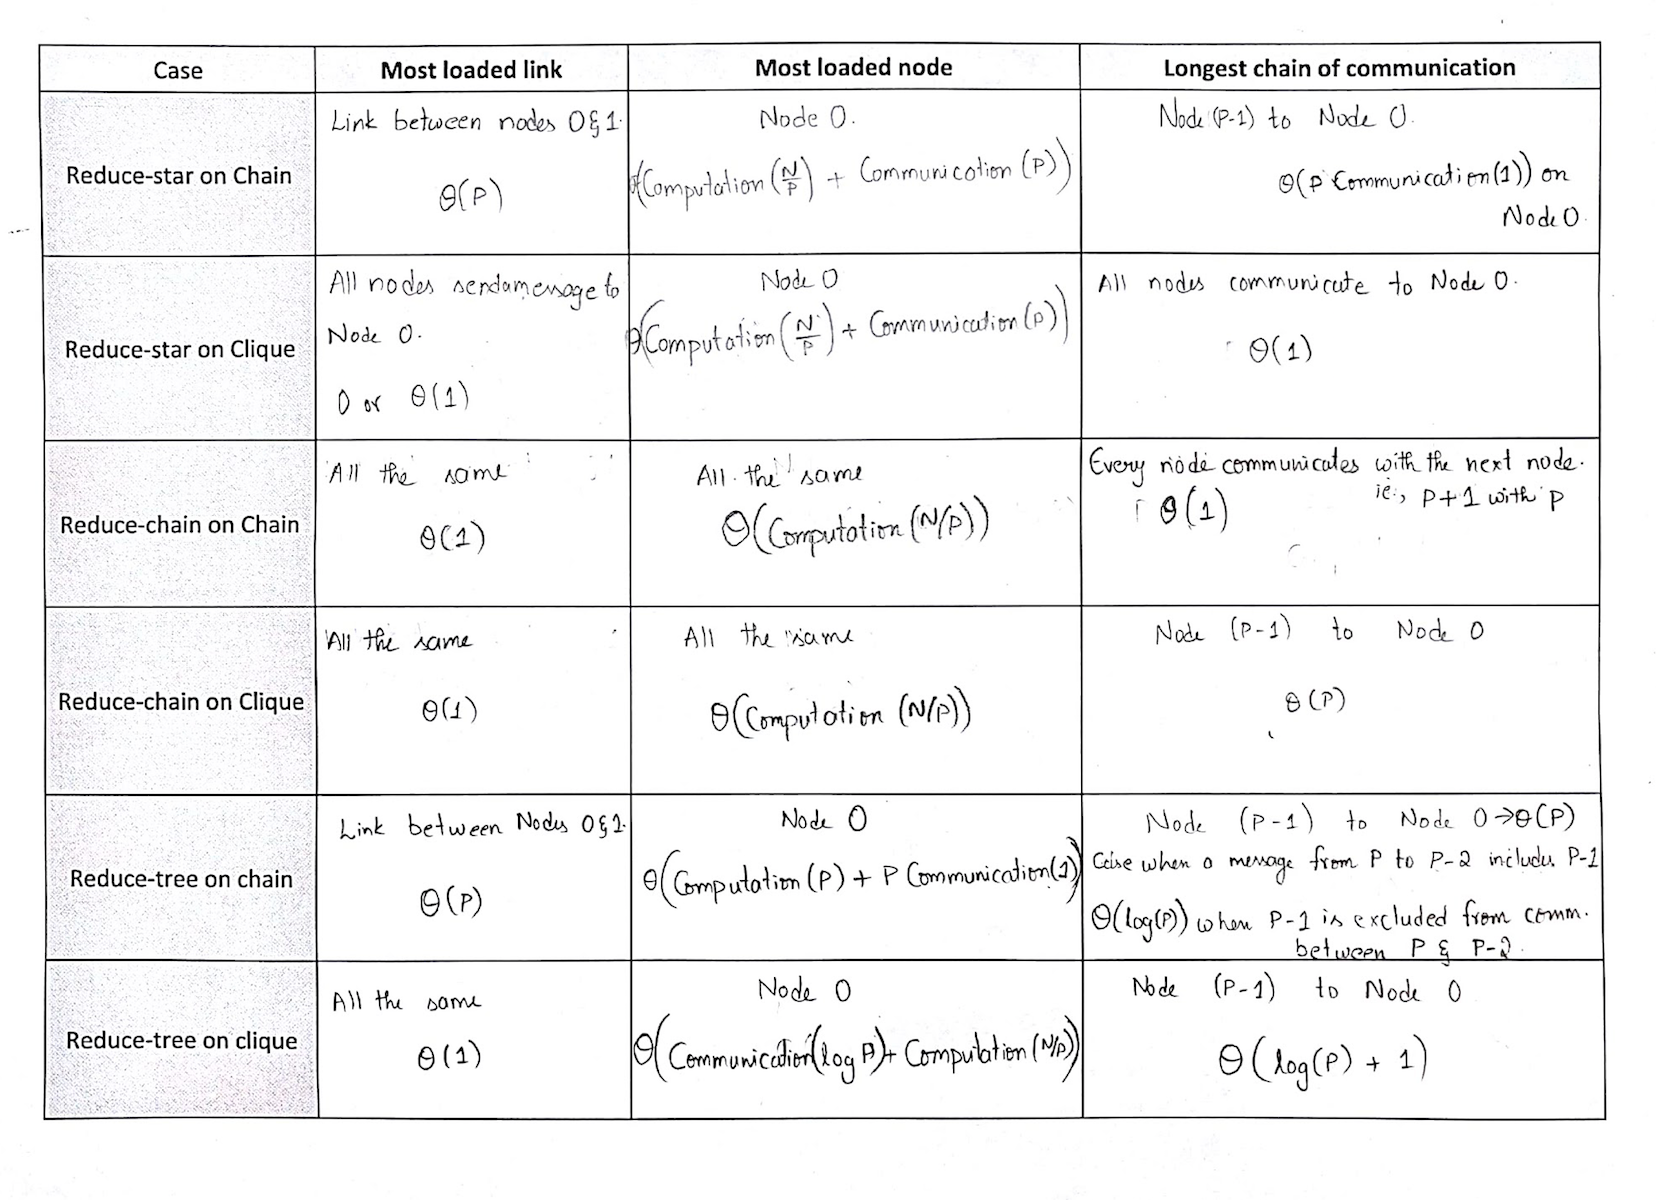 Case
Most loaded link
Most loaded node
Longest chain of communication
Reduce-star on Chain
Link between nodes 0 & 1.
Θ(P)
Node 0.
Θ(Computation (N/P) + Communication (P))
Node (P-1) to Node 0.
Θ(P Communication(1)) on
Node 0.
Reduce-star on Clique
All nodes send a message to
Node 0.
0 or Θ(1)
Node 0
Θ(Computation (N/P) + Communication (P))
All nodes communicate to Node 0.
Θ(1)
Reduce-chain on Chain
All the same
Θ(1)
All the same
Θ(Computation (N/P))
Every node communicates with the next node.
ie., P+1 with P
Θ(1)
Reduce-chain on Clique
All the same
Θ(1)
All the same
Θ(Computation (N/P))
Node (P-1) to Node 0
Θ(P)
Reduce-tree on chain
Link between Nodes 0 & 1.
Θ(P)
Node 0
Θ(Computation (P) + P Communication(1))
Node (P-1) to Node 0 → Θ(P)
Case when a message from P to P-2 includes P-1
Θ(log(P)) when P-1 is excluded from comm.
between P & P-2.
Reduce-tree on clique
All the same
Θ(1)
Node 0
Θ(Communication(log P) + Computation (N/P))
Node (P-1) to Node 0
Θ(log(P) + 1)